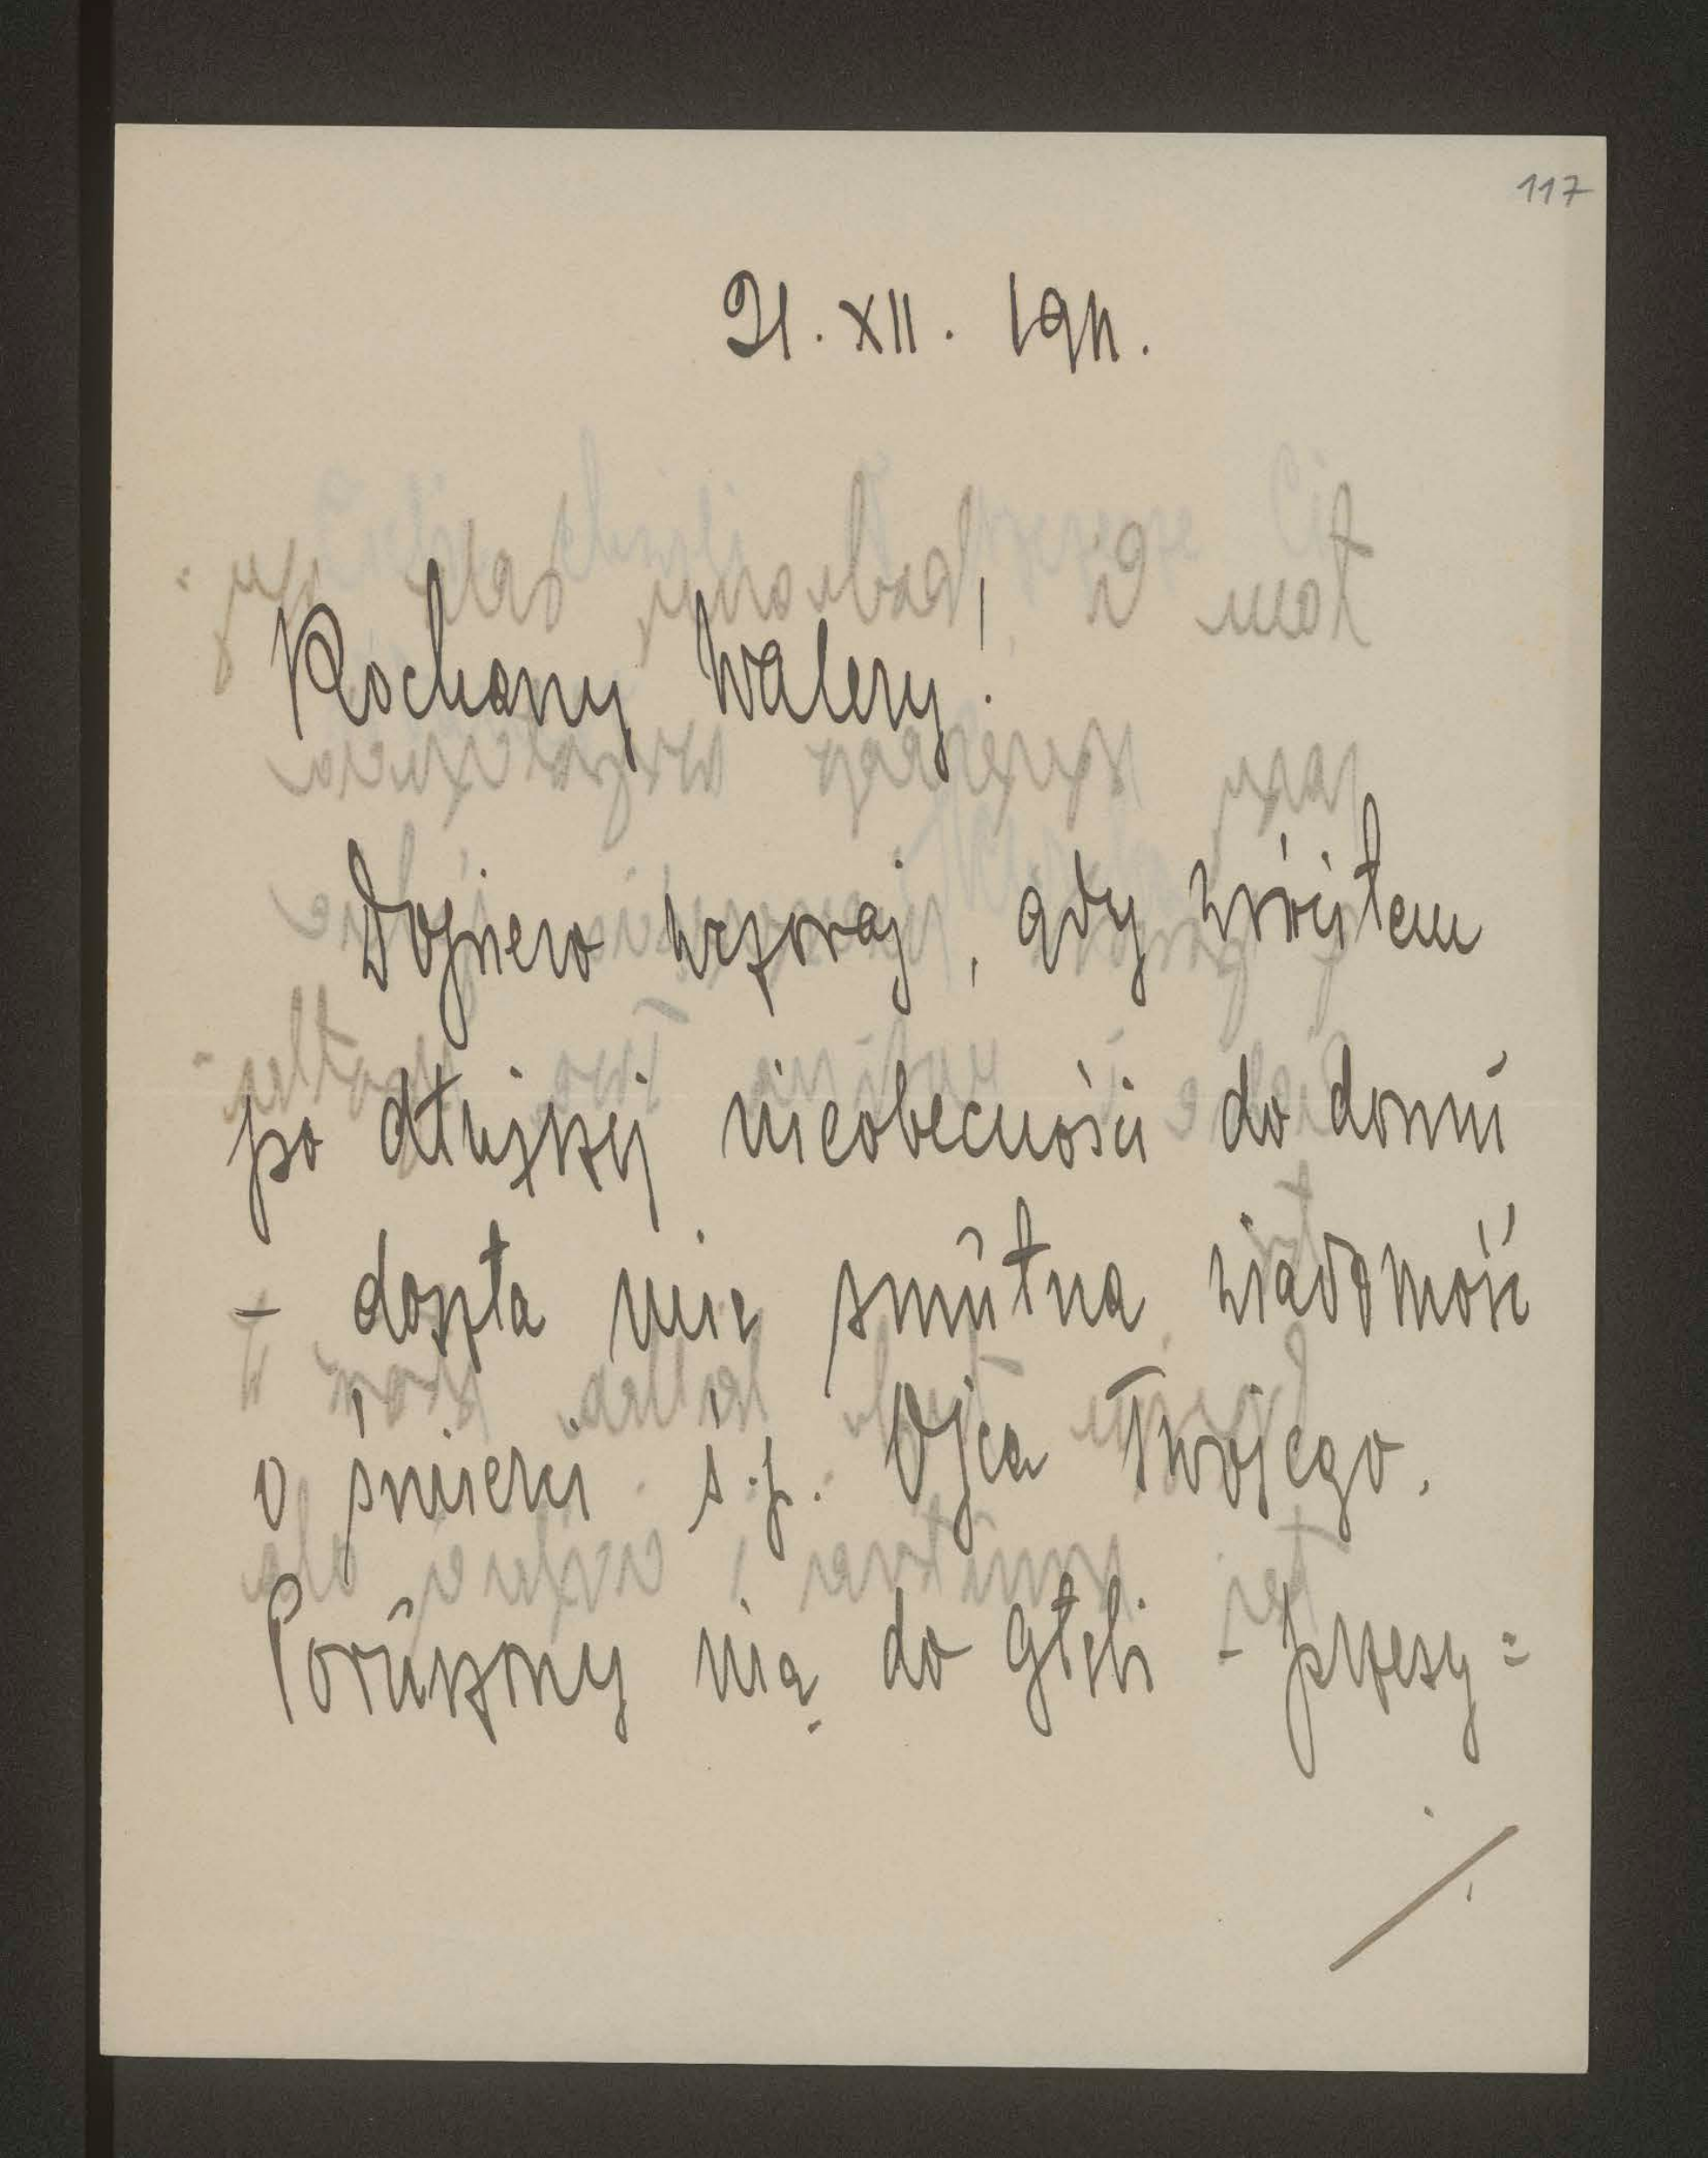 117
21. XII. 1911.
Kochany Walery!
Dopiero wczoraj, gdy wróciłem
po dłuższej nieobecności do domu
– doszła mię smutna wiadomość
o śmierci ś.p. Ojca Twojego.
Poruszony nią do głębi – przesy=